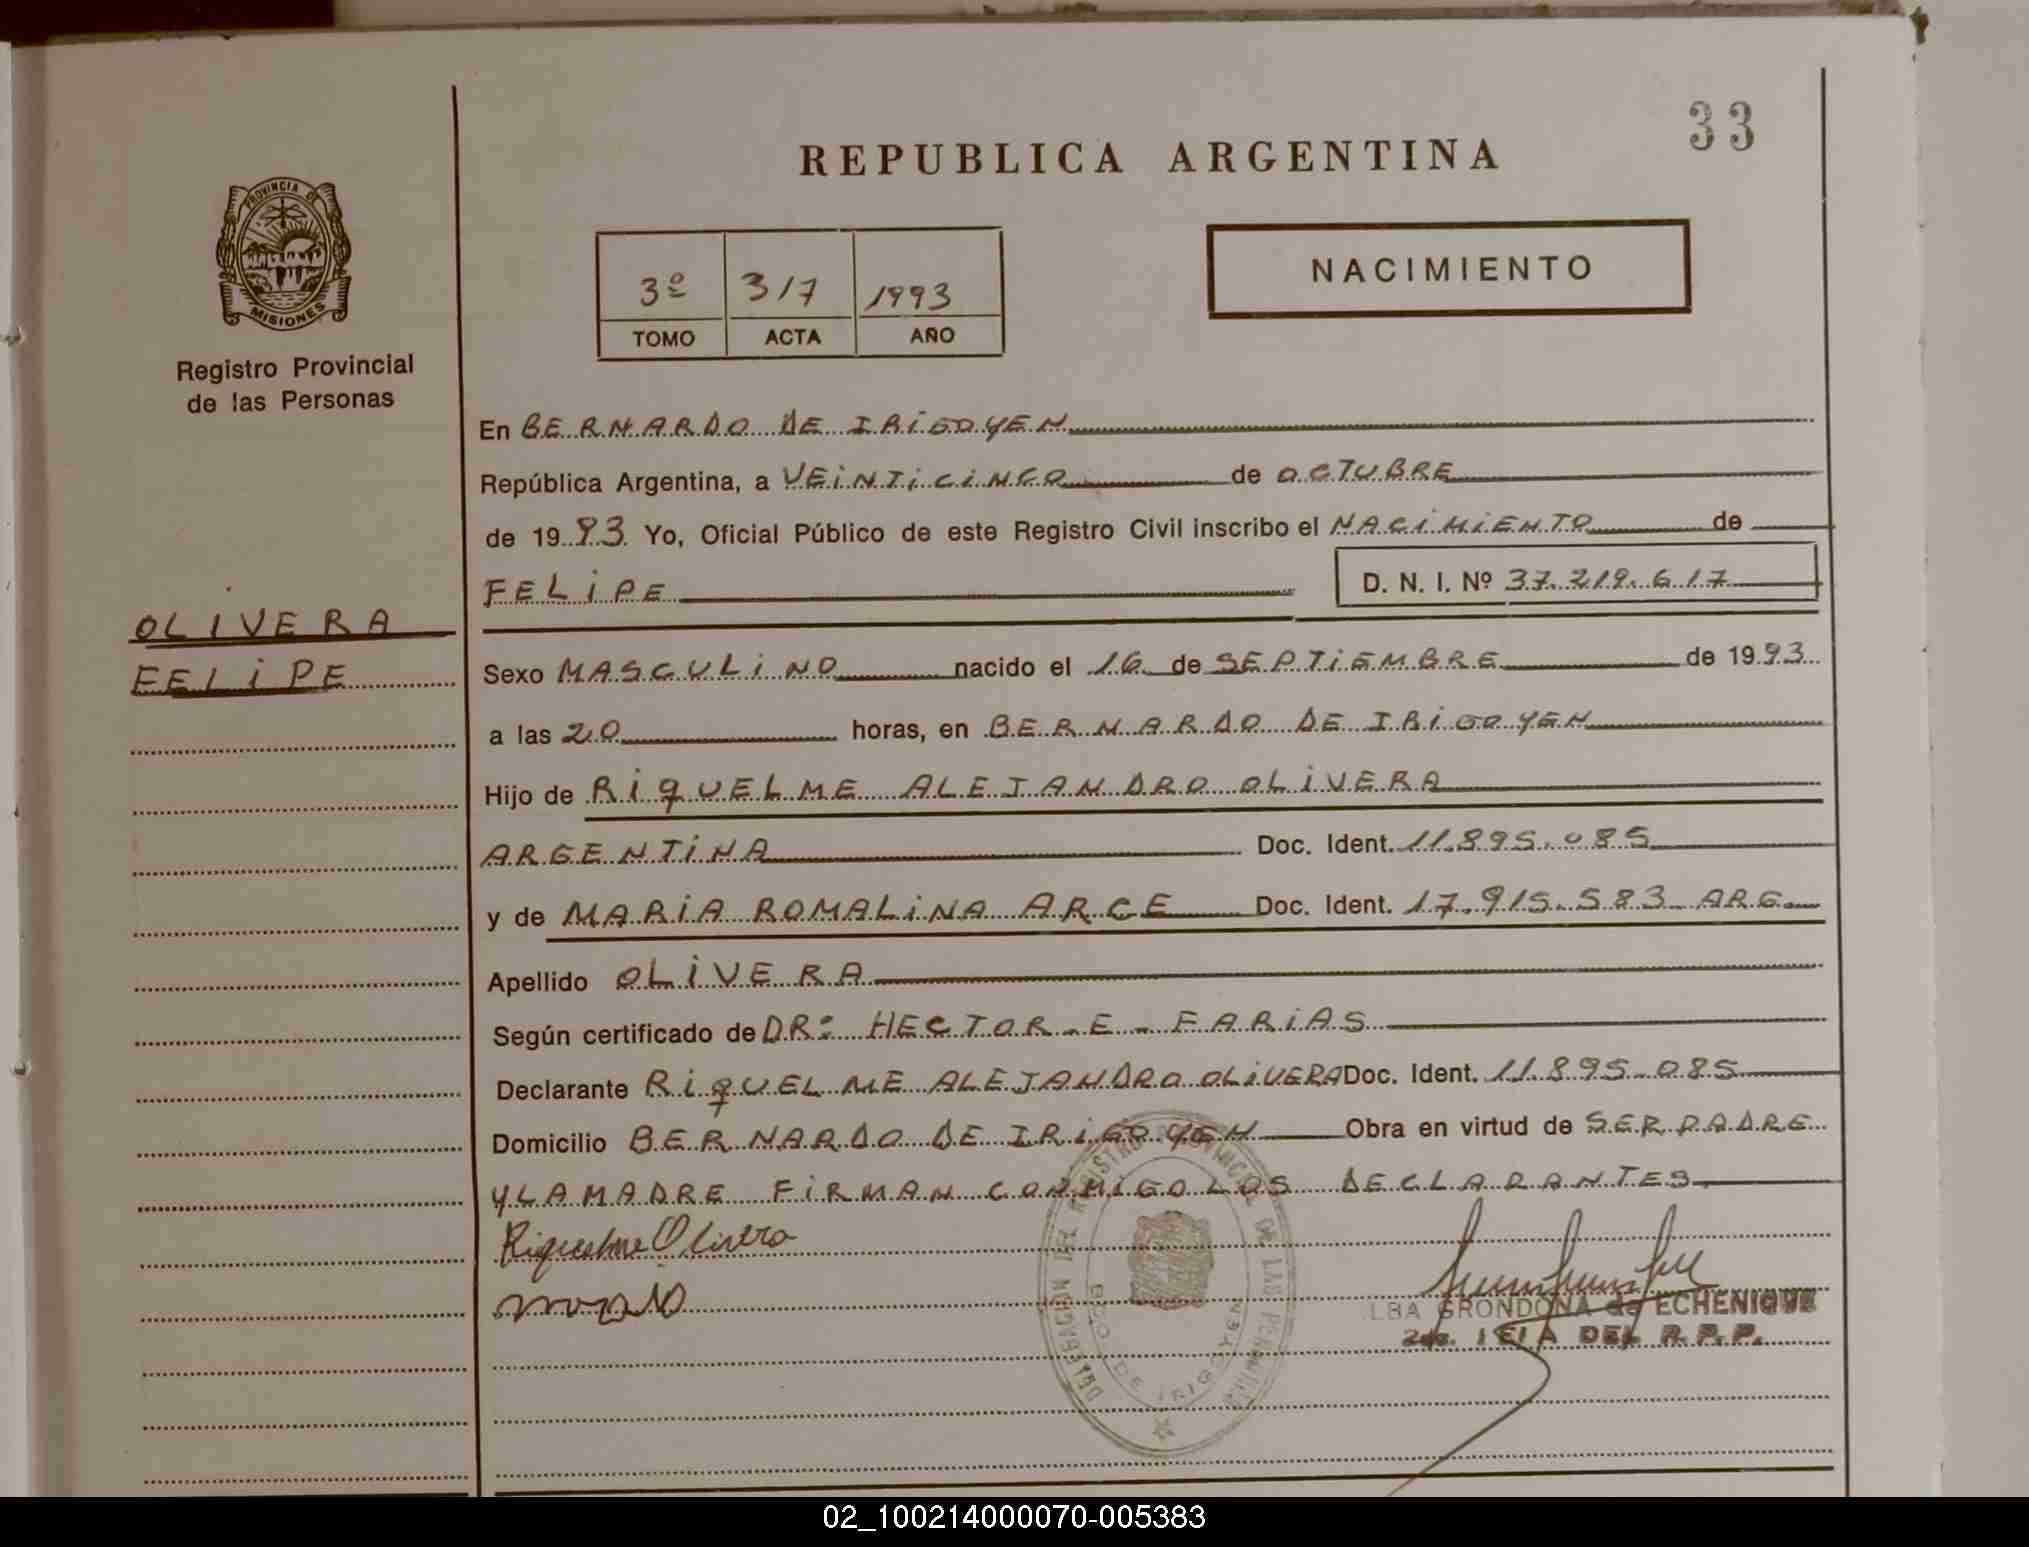 33
REPUBLICA ARGENTINA
PROVINCIA DE
MISIONES
Registro Provincial
de las Personas
3º 317 1993
TOMO ACTA AÑO
NACIMIENTO
En BERNARDO DE IRIGOYEN
República Argentina, a VEINTICINCO de OCTUBRE
de 1993 Yo, Oficial Público de este Registro Civil inscribo el NACIMIENTO de
FELIPE D. N. I. Nº 37.219.617
OLIVERA
FELIPE
Sexo MASCULINO nacido el 16 de SEPTIEMBRE de 1993
a las 20 horas, en BERNARDO DE IRIGOYEN
Hijo de RIQUELME ALEJANDRO OLIVERA
ARGENTINA Doc. Ident. 11.895.085
y de MARIA ROMALINA ARCE Doc. Ident. 17.915.583 ARG.
Apellido OLIVERA
Según certificado de DR: HECTOR-E-FARIAS
Declarante RIQUELME ALEJANDRO OLIVERA Doc. Ident. 11.895.085
Domicilio BERNARDO DE IRIGOYEN Obra en virtud de SER PADRE
Y LA MADRE FIRMAN CONMIGO LOS DECLARANTES
Riquelme Olivera
DELEGACION DEL REGISTRO PROVINCIAL DE LAS PERSONAS
BDO DE IRIGOYEN
LBA GRONDONA de ECHENIQUE
DEL R. P. P.
02_100214000070-005383